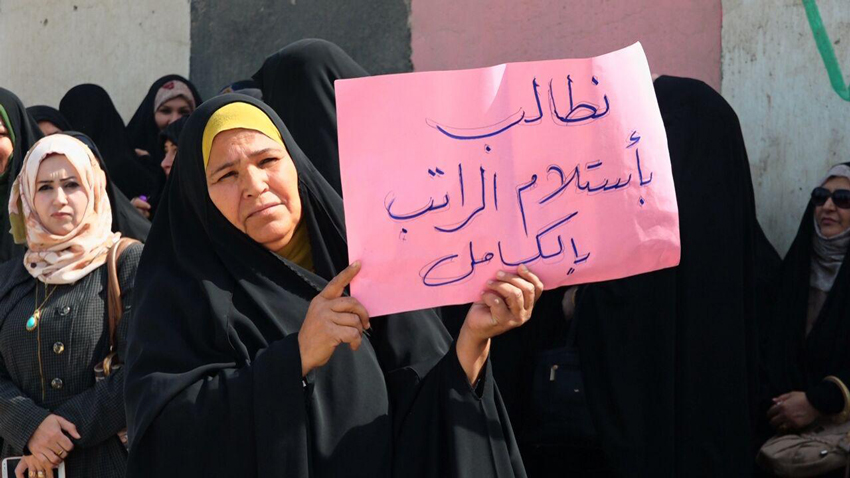 نطالب
بأستلام الراتب
بالكامل